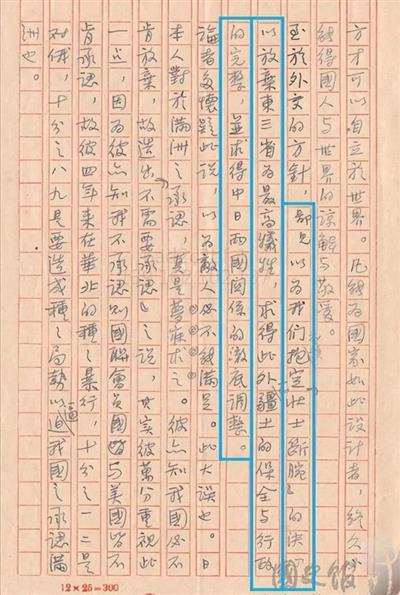 方才可以自立於世界。凡能為國家如此設計者,終久必
能得國人與世界的諒解與敬愛。
至於外交的方針,鄙見以為我們抱定「壯士斷腕」的決
以放棄東三省為最高犧牲,求得此外疆土的保全與行政
的完整,並求得中日兩國關係的徹底調整。
論者多懷疑此說,以為敵人必不能滿足。此大誤也。日
本人對於滿洲之承認,真是夢寐求之。彼亦知我國必不
肯放棄,故造出「不需要承認」之說,其實彼萬分重視此
一點,因為彼亦知我不承認則國聯會員國皆與美國皆不
肯承認,故彼四年來在華北的種種暴行,十分之一二是
對俄,十分之八九是要造成種種局勢以逼迫我國之承認滿
洲也。
12×25=300
國史館